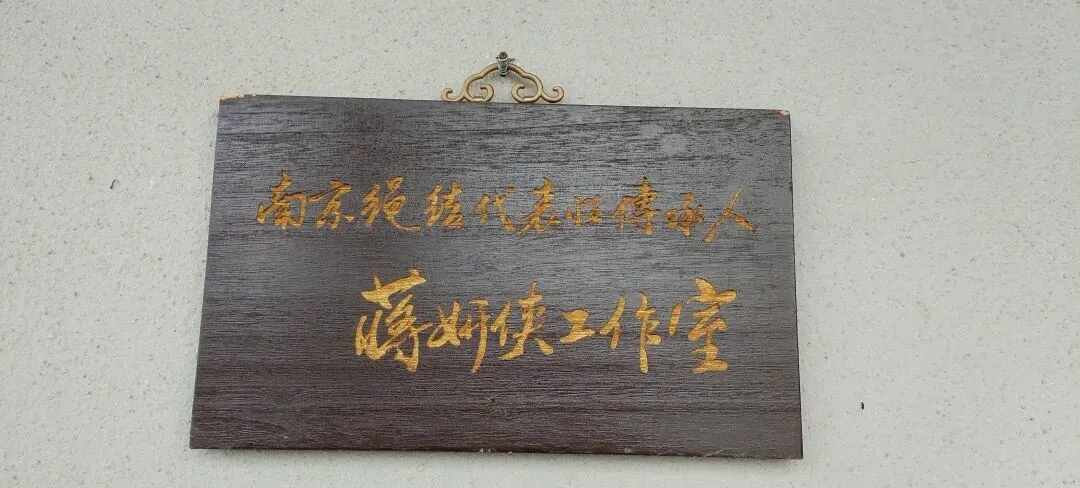 南京绳结代表性傳承人
蒋妍侠工作室